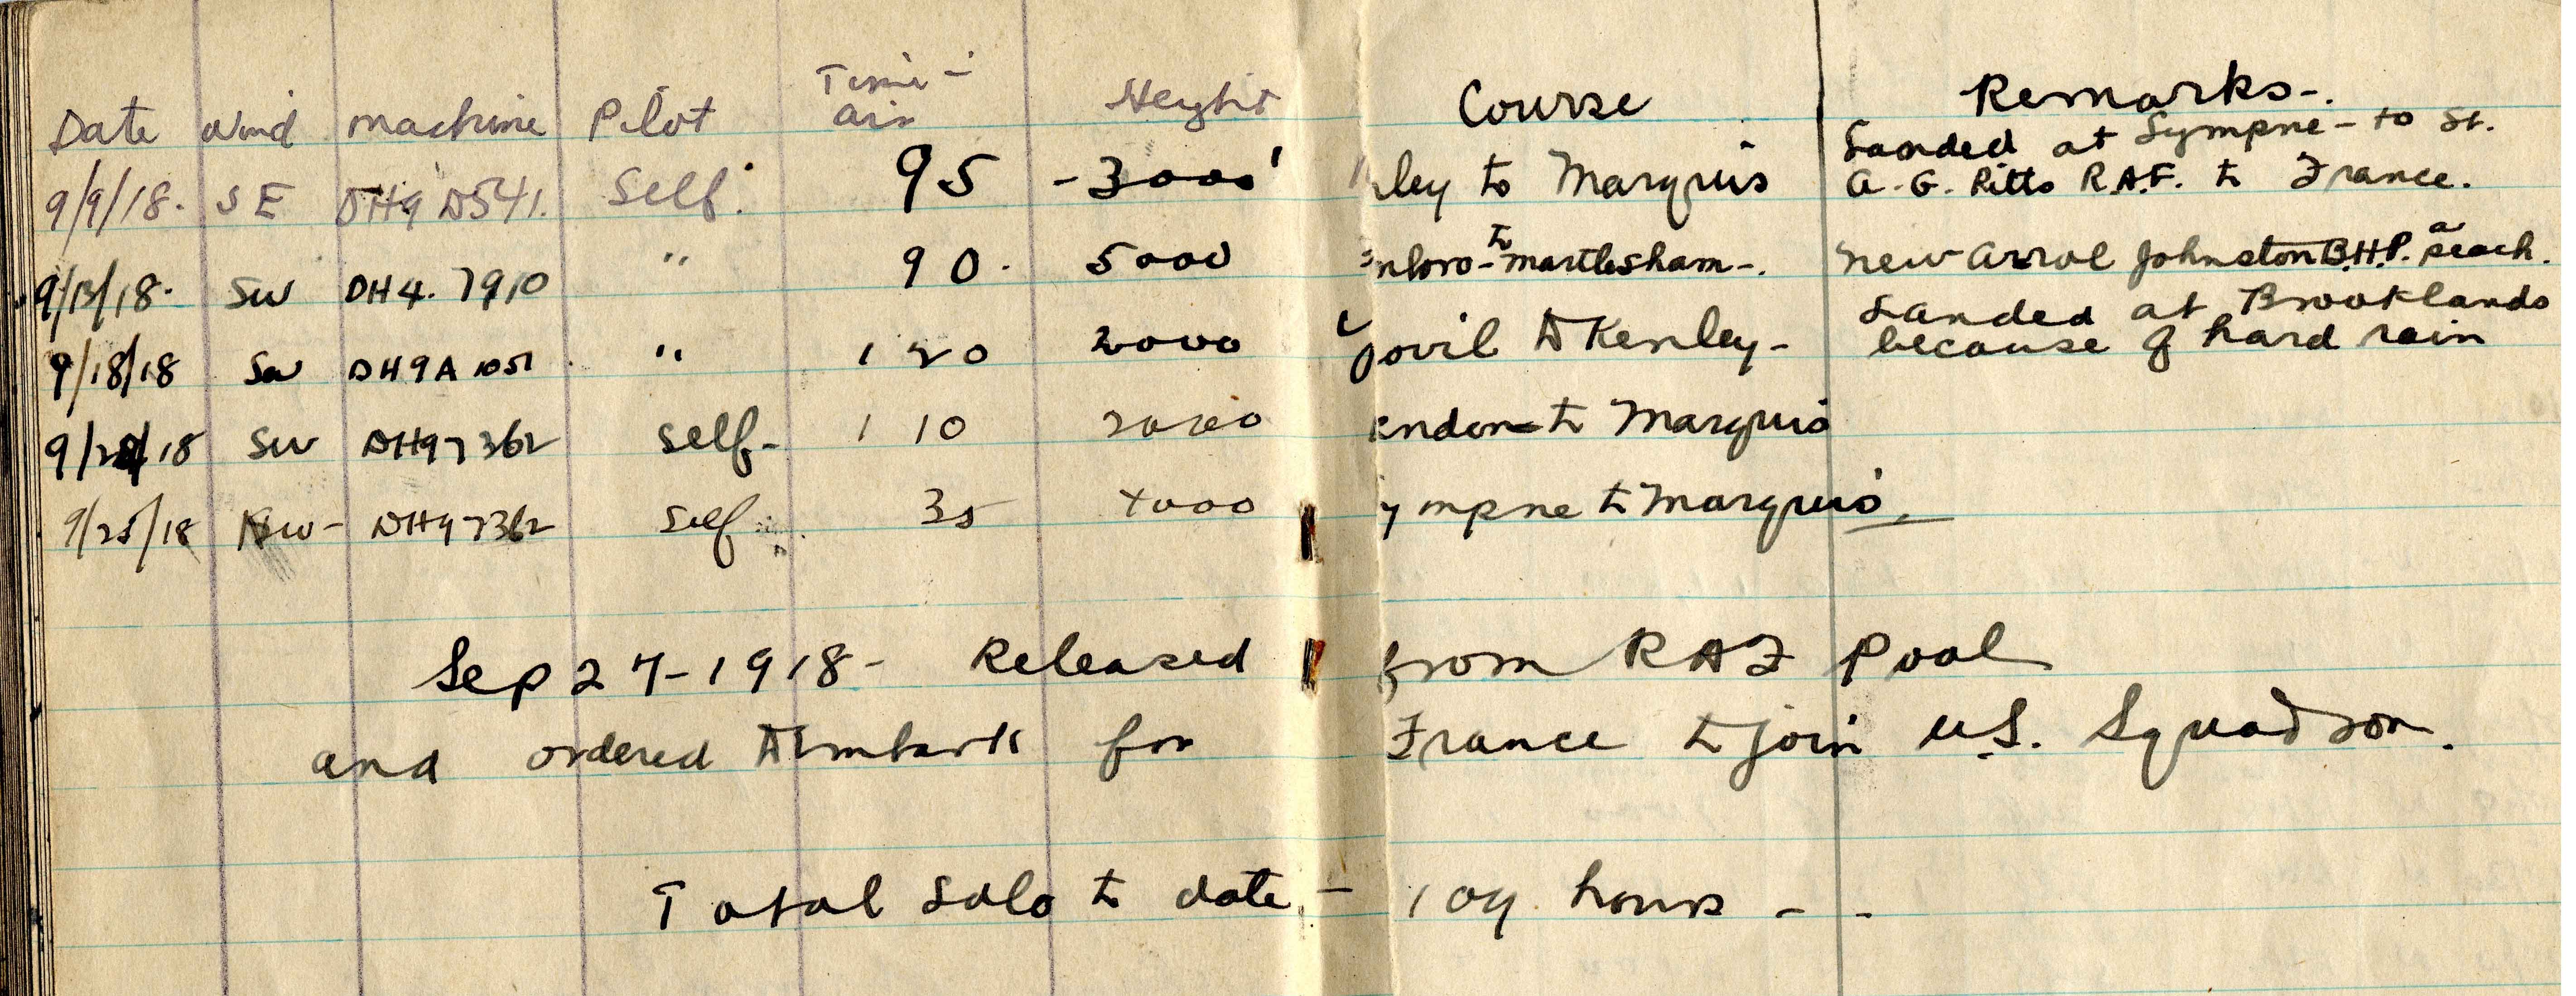 Date Wind Machine Pilot Time - Air Height Course Remarks -.
9/9/18. SE DH9 D541. Self. 95 - 3000' nley to Marquis Landed at Lympne - to St.
A. G. Pitts R.A.F. to France.
9/13/18. SW DH4. 7910 " 90. 5000 nboro - to Martlesham -. New Arrol Johnston B.H.P. a peach.
9/18/18 SW DH9A 1051 " 120 2000 Yovil to Kenley - Landed at Brooklands
because of hard rain
SW DH9 7362 Self - 110 2000 endon to Marquis
9/25/18 NW - DH9 7362 Self 35 4000 ympne to Marquis.
Sep 27 - 1918 - Released from RAF Pool
and ordered to Embark for France to join U.S. Squadron.
Total Solo to date - 109 hours - -